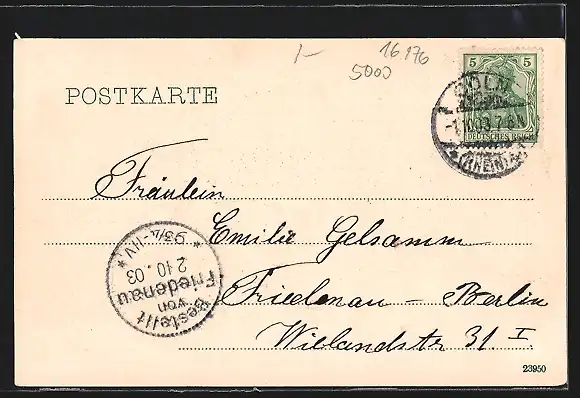 1- 16176
5000
POSTKARTE
5 5
DEUTSCHES REICH
CÖLN
7-8
(RHEIN)
Fräulein
Emilie Gelsamm
Friedenau - Berlin
Wielandstr 31. I
Bestellt
von
Friedenau
2.10.03
* 9¾-11V *
23950